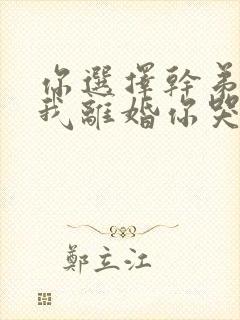 你選擇幹弟
我離婚你哭
鄭立江